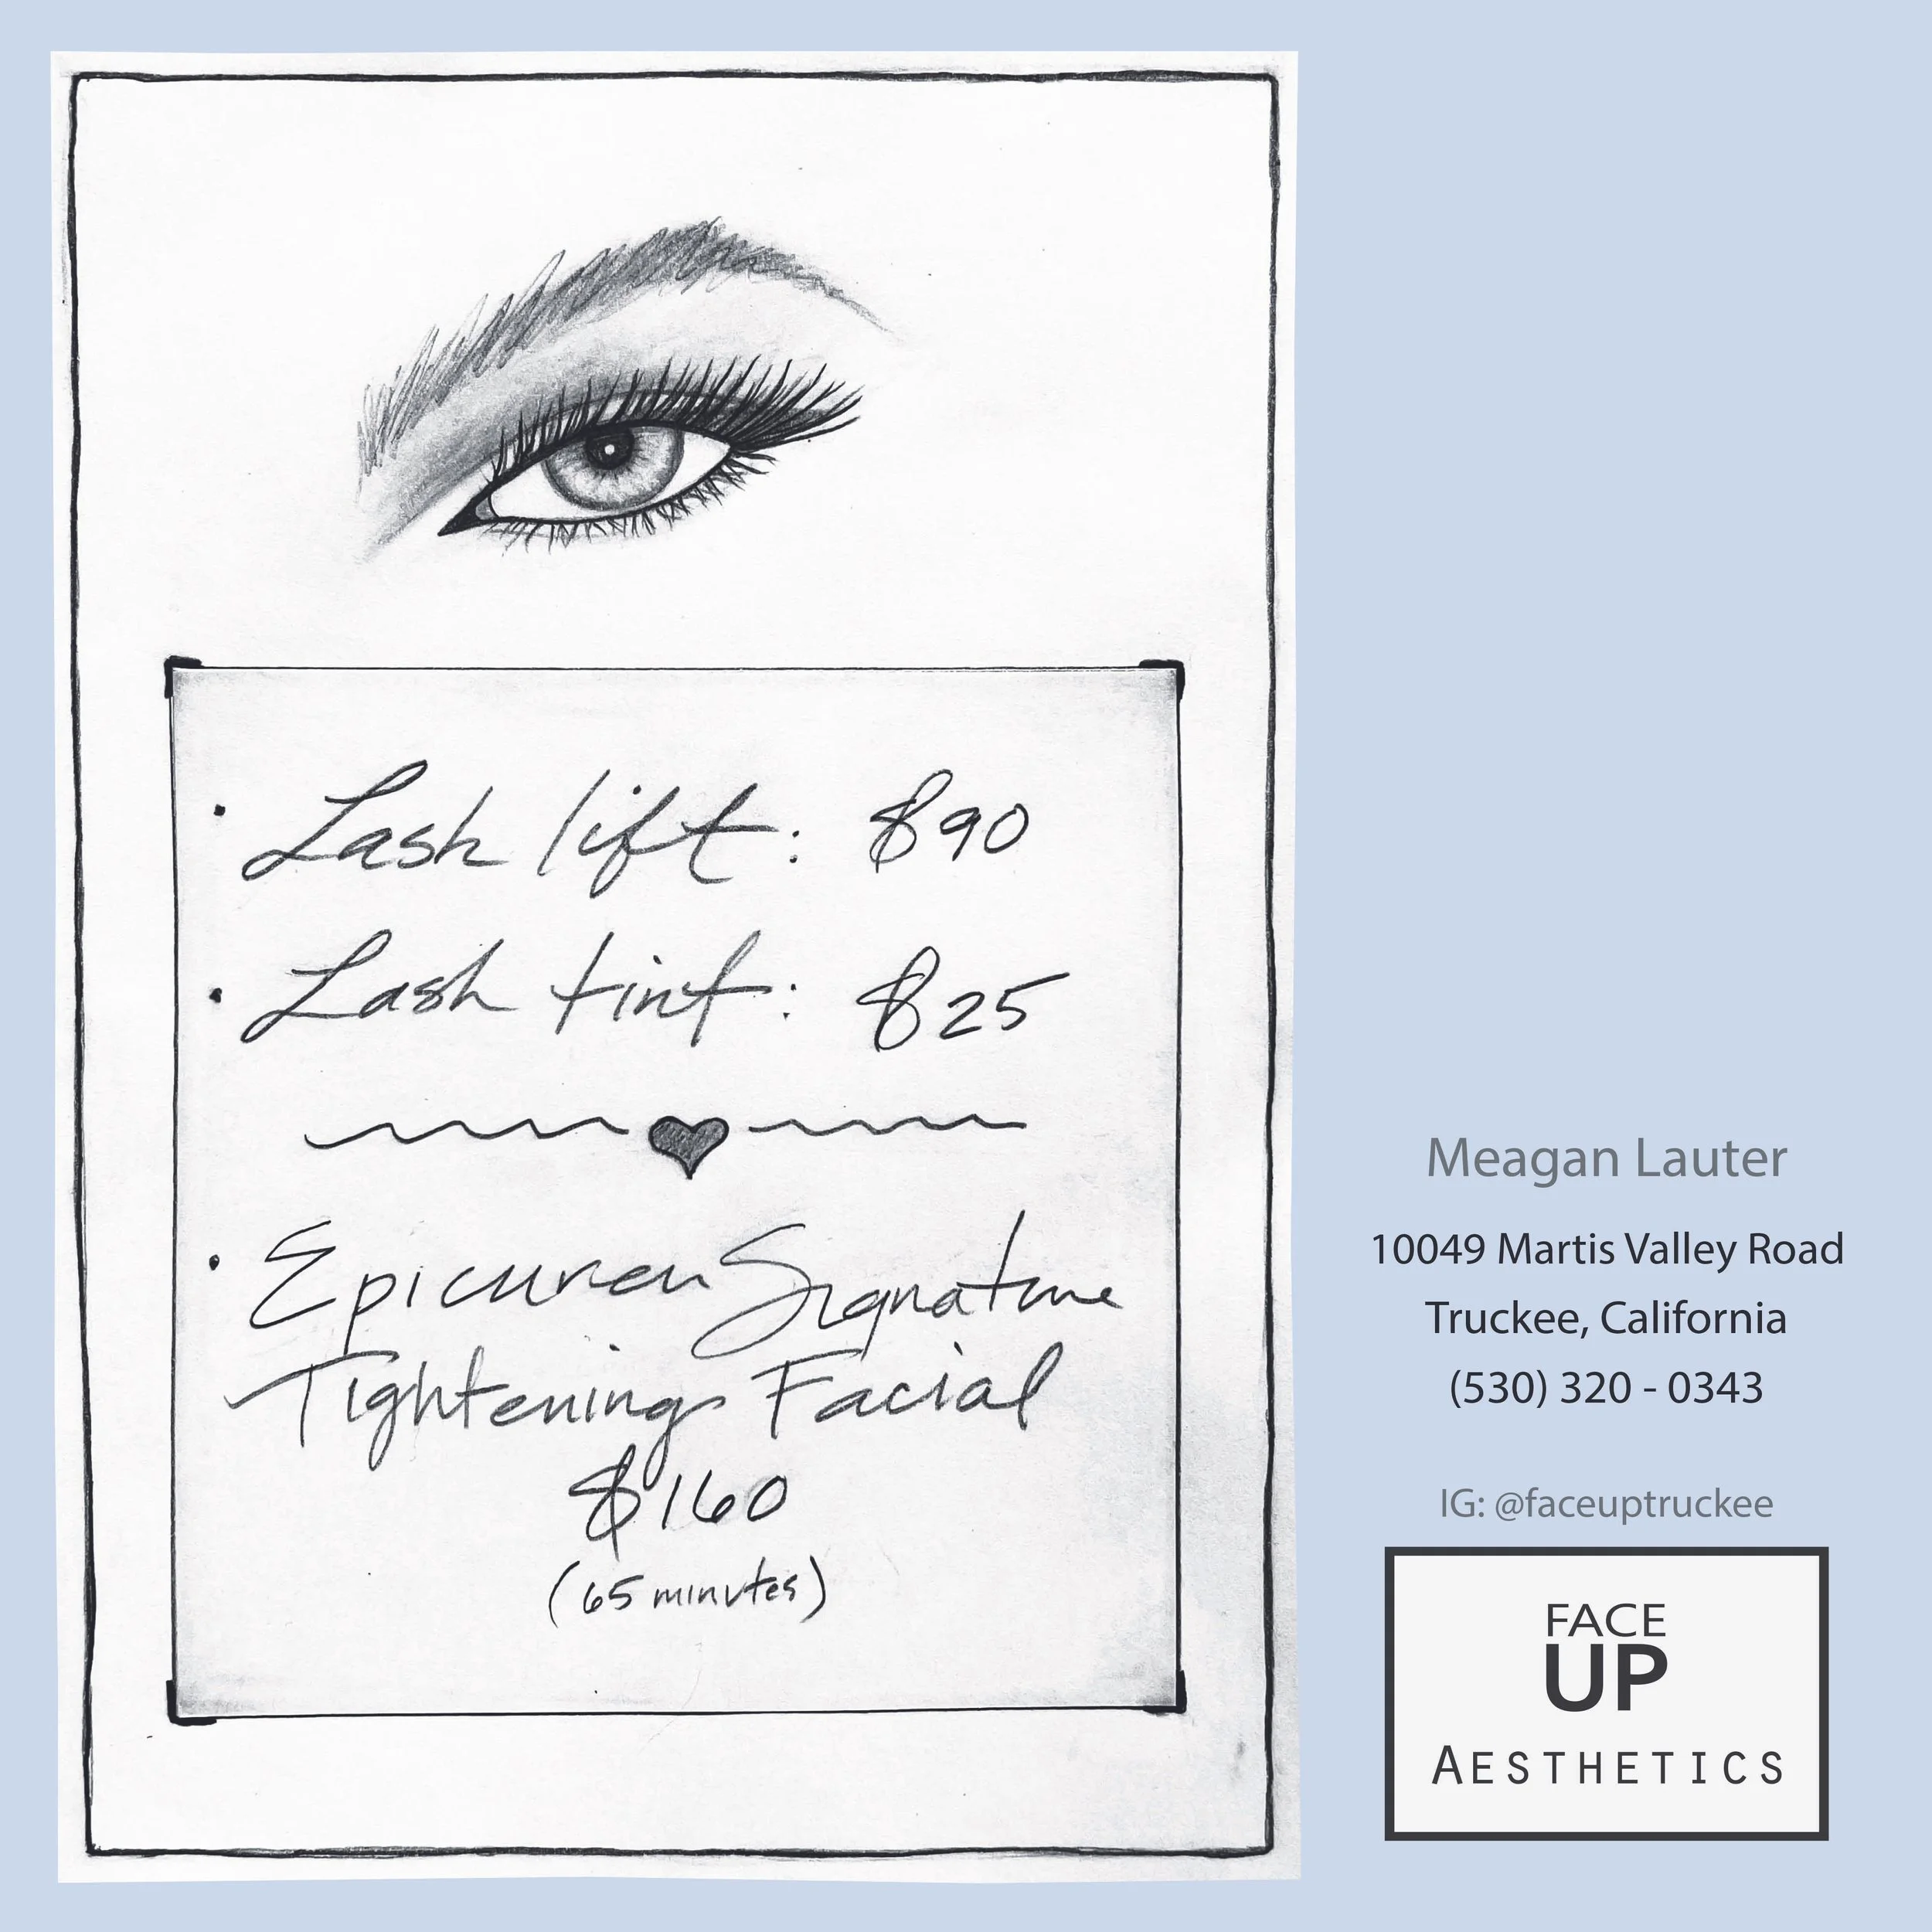 • Lash lift: $90
• Lash tint: $25
• Epicuren Signature
Tightening Facial
$160
(65 minutes)
Meagan Lauter
10049 Martis Valley Road
Truckee, California
(530) 320 - 0343
IG: @faceuptruckee
FACE
UP
AESTHETICS